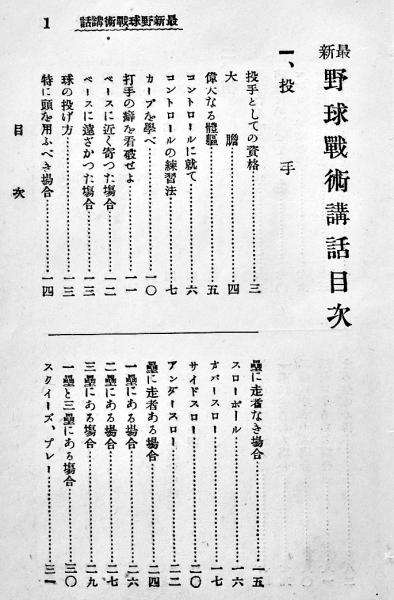 話講術戰球野新最
1
最新 野球戰術講話目次
一、投手
投手としての資格……三
大膽……四
偉大なる體軀……五
コントロールに就て……六
コントロールの練習法……七
カーブを學べ……一〇
打手の癖を看破せよ……一一
ベースに近く寄つた塲合……一二
ベースに遠ざかつた塲合……一三
球の投げ方……一三
特に頭を用ふべき塲合……一四
壘に走者なき塲合……一五
スローボール……一六
オバースロー……一七
サイドスロー……二〇
アンダースロー……二二
壘に走者ある塲合……二四
一壘にある塲合……二六
二壘にある塲合……二七
三壘にある塲合……二九
一壘と三壘にある塲合……三〇
スクイーズ、プレー……三一
目次